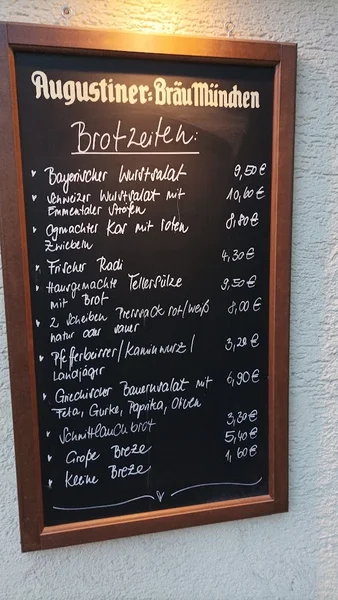 Augustiner-Bräu München
Brotzeiten:
Bayerischer Wurstsalat 9,50 €
Schweizer Wurstsalat mit 10,60 €
Emmentaler Streifen
Ogmachter Kas mit roten 8,80 €
Zwiebeln
Frischer Radi 4,30 €
Hausgemachte Tellersülze 9,50 €
mit Brot
2 Scheiben Pressack rot/weiß 8,00 €
natur oder sauer
Pfefferbeisser/Kaminwurz/ 3,20 €
Landjäger
Griechischer Bauernsalat mit 6,90 €
Feta, Gurke, Paprika, Oliven
Schnittlauchbrot 3,30 €
Große Breze 5,40 €
Kleine Breze 1,60 €